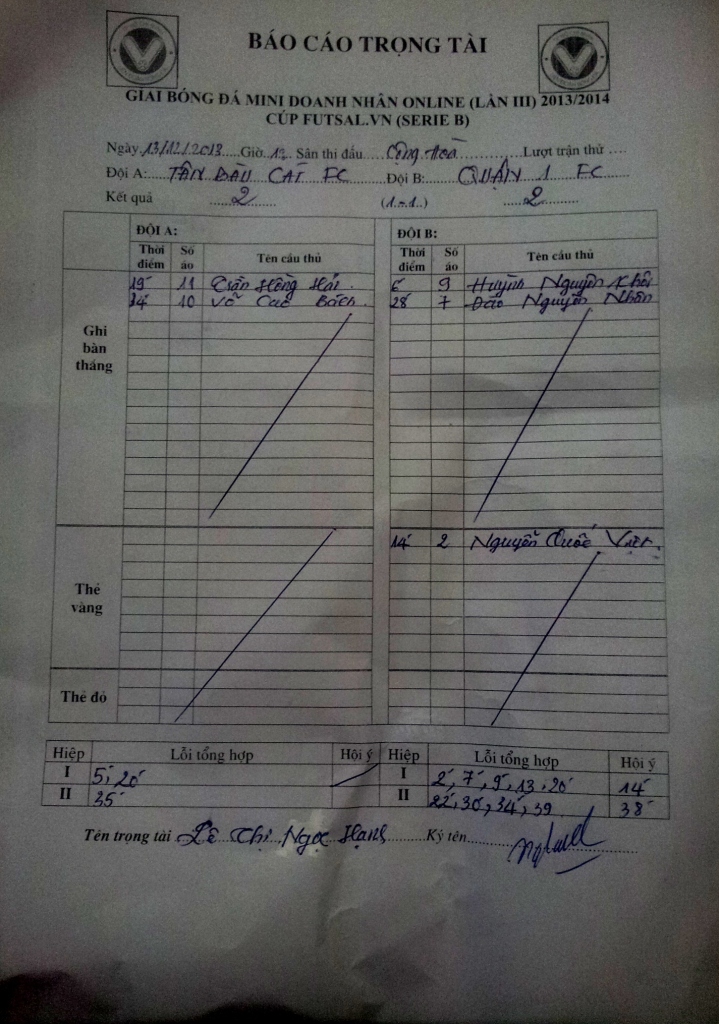 BÁO CÁO TRỌNG TÀI
GIẢI BÓNG ĐÁ MINI DOANH NHÂN ONLINE (LẦN III) 2013/2014
CÚP FUTSAL.VN (SERIE B)
Ngày 13/12/2013 Giờ 12 Sân thi đấu Cộng Hoà Lượt trận thứ
Đội A: TÂN BÀU CÁT FC Đội B: QUẬN 1 FC
Kết quả 2 (1-1) 2
ĐỘI A: ĐỘI B:
Thời điểm Số áo Tên cầu thủ Thời điểm Số áo Tên cầu thủ
Ghi bàn thắng
19' 11 Trần Hồng Hải 6' 9 Huỳnh Nguyên Khôi
34' 10 Võ Cao Bách 28' 7 Đào Nguyên Nhân
Thẻ vàng
14' 2 Nguyễn Quốc Việt
Thẻ đỏ
Hiệp Lỗi tổng hợp Hội ý Hiệp Lỗi tổng hợp Hội ý
I 5', 20' I 2', 7', 9', 13', 20' 14'
II 35' II 22', 30', 34', 39 38'
Tên trọng tài Lê Thị Ngọc Hạnh Ký tên